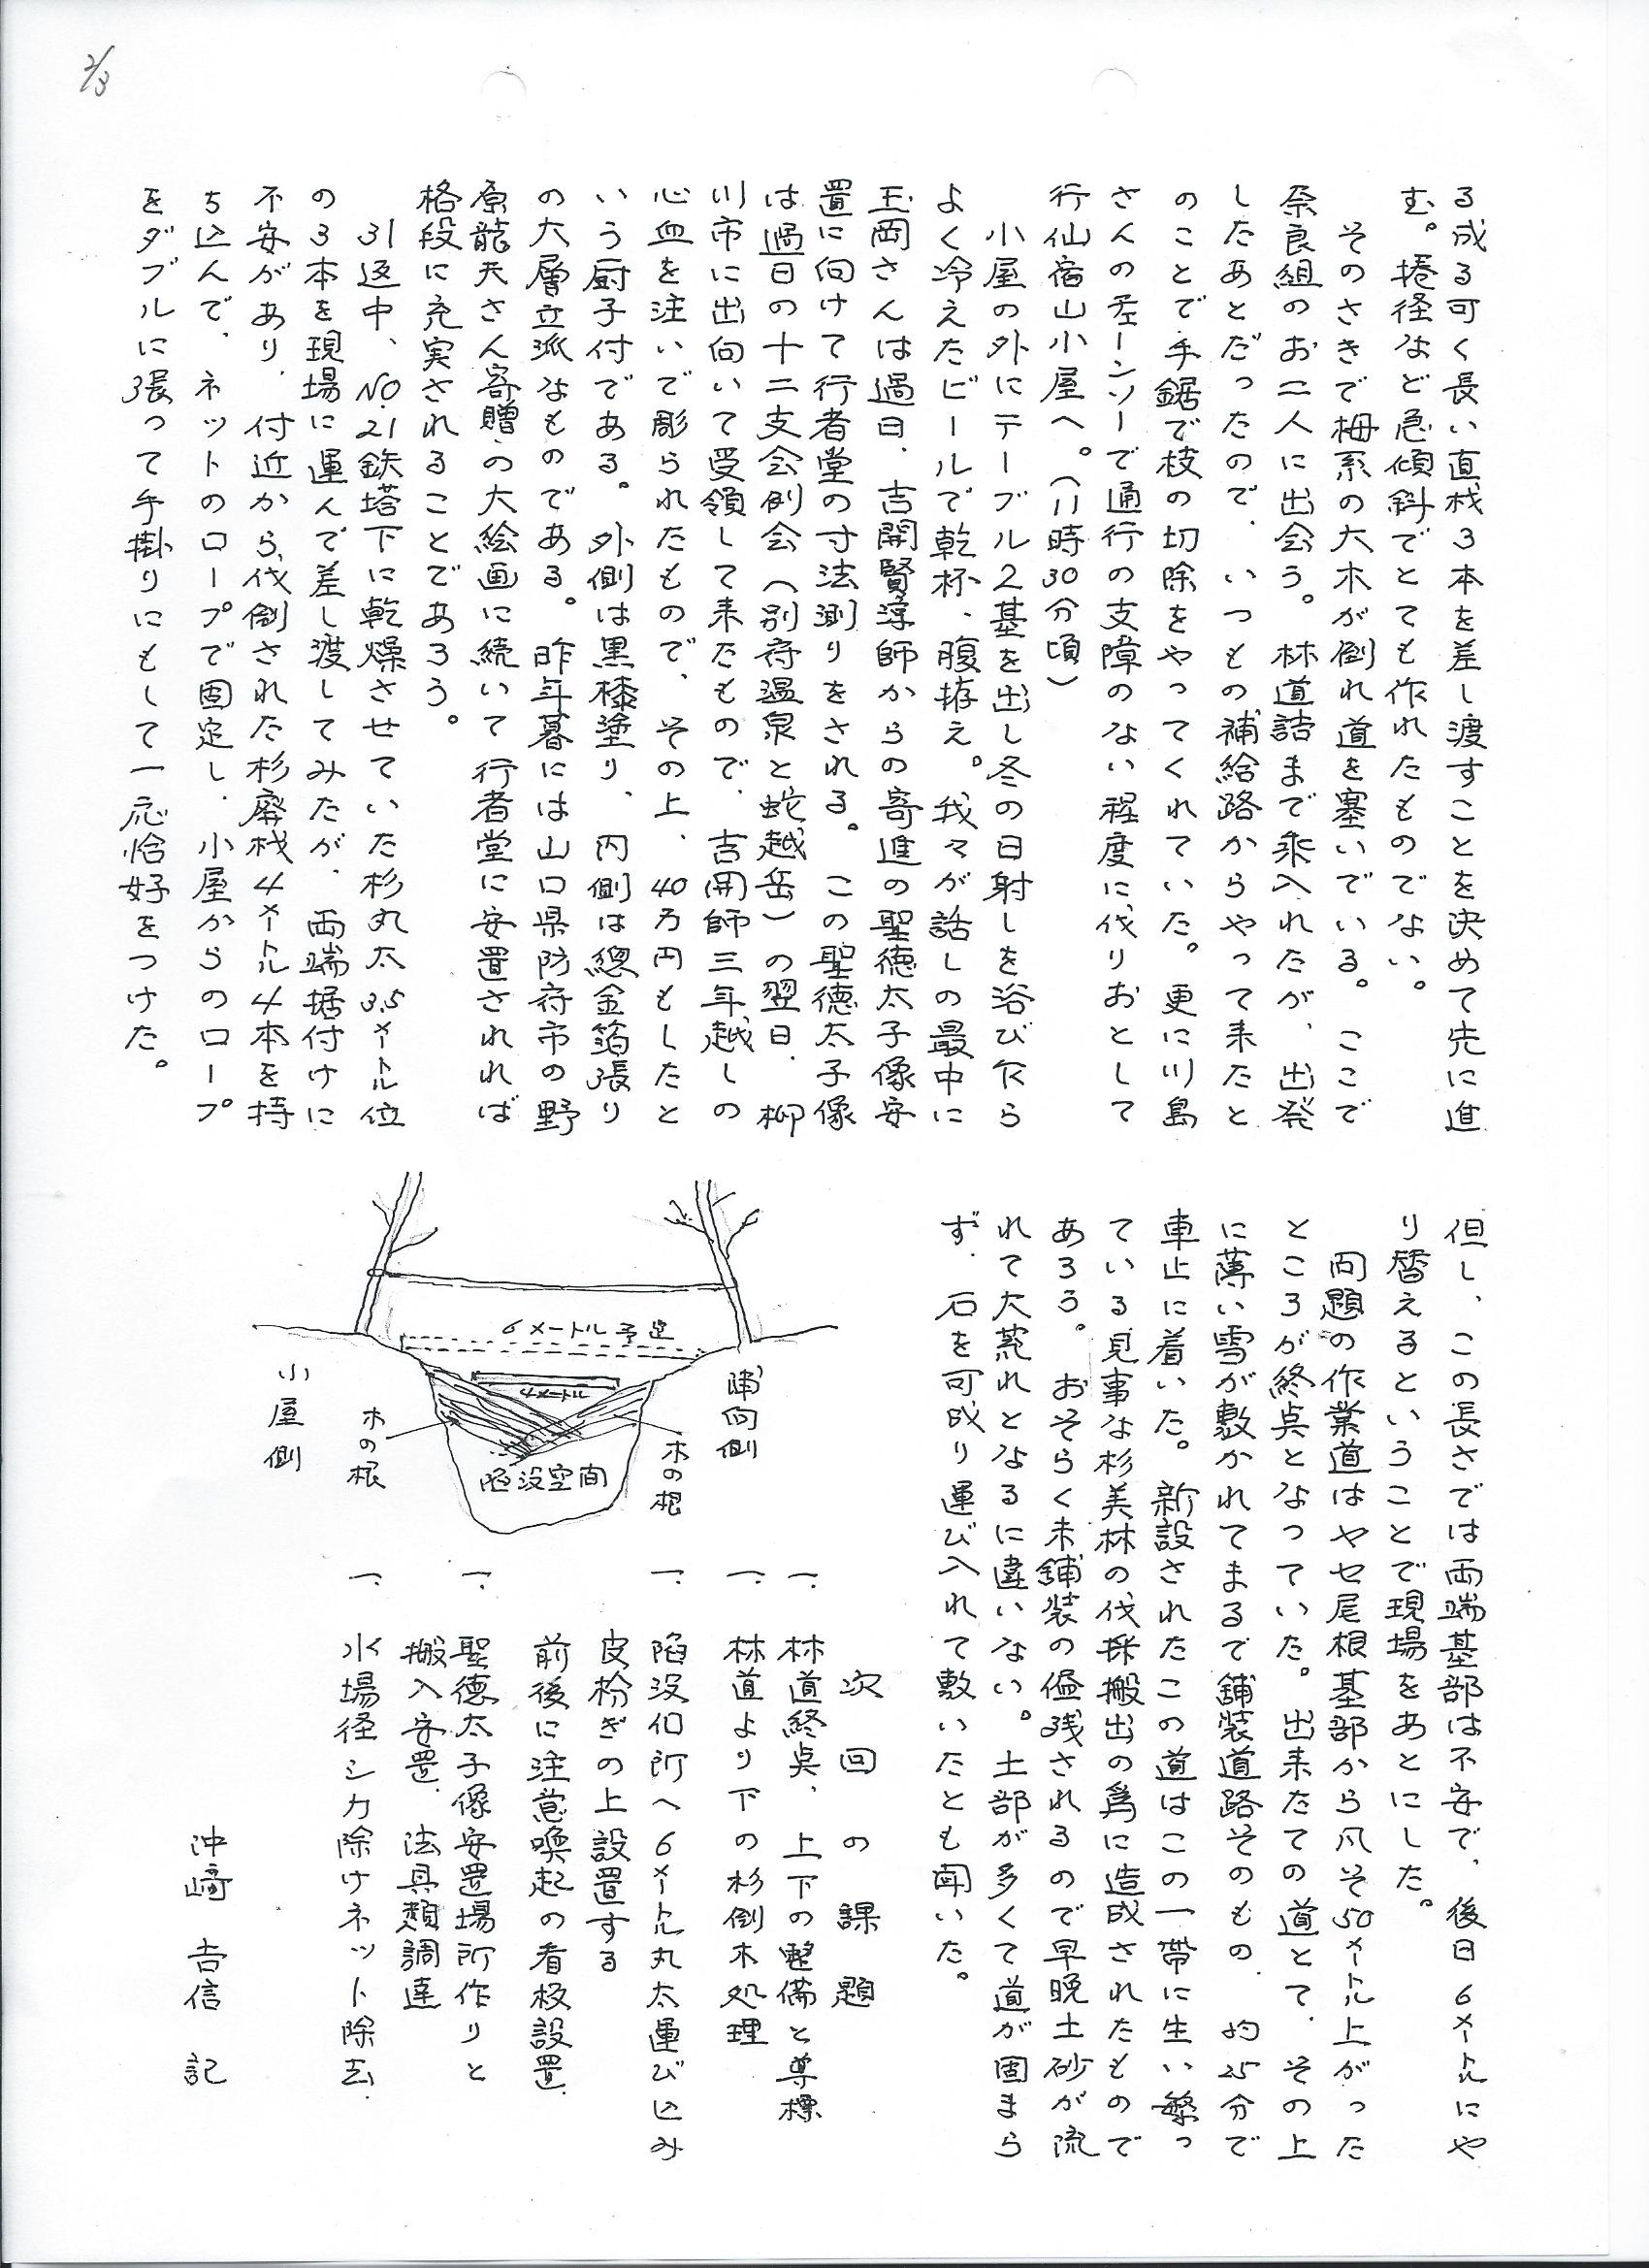 2/3
る成る可く長い直杙3本を差し渡すことを決めて先に進
む。捲径など急傾斜でとても作れたものでない。
そのさきで栂系の大木が倒れ道を塞いでいる。ここで
奈良組のお二人に出会う。林道詰まで乗入れたが、出発
したあとだったので、いつもの補給路からやって来たと
のことで手鋸で枝の切除をやってくれていた。更に川島
さんのチェーンソーで通行の支障のない程度に伐りおとして
行仙宿山小屋へ。(11時30分頃)
小屋の外にテーブル2基を出し冬の日射しを浴び乍ら
よく冷えたビールで乾杯、腹拵え。我々が話しの最中に
玉岡さんは過日、吉開賢淳師からの寄進の聖徳太子像安
置に向けて行者堂の寸法測りをされる。この聖徳太子像
は過日の十二支会例会(別府温泉と蛇越岳)の翌日、柳
川市に出向いて受領して来たもので、吉開師三年越しの
心血を注いで彫られたもので、その上、40万円もしたと
いう厨子付である。外側は黒漆塗り、内側は總金箔張り
の大層立派なものである。昨年暮には山口県防府市の野
原龍夫さん寄贈の大絵画に続いて行者堂に安置されれば
格段に充実されることであろう。
31返中、NO.21鉄塔下に乾燥させていた杉丸太3.5メートル位
の3本を現場に運んで差し渡してみたが、両端据付けに
不安があり、付近から伐倒された杉廃杙4メートル4本を持
ち込んで、ネットのロープで固定し、小屋からのロープ
をダブルに張って手掛りにもして一応恰好をつけた。
但し、この長さでは両端基部は不安で、後日6メートルにや
り替えるということで現場をあとにした。
問題の作業道はヤセ尾根基部から凡そ50メートル上がった
ところが終点となっていた。出来たての道とて、その上
に薄い雪が敷かれてまるで舗装道路そのもの、約25分で
車止に着いた。新設されたこの道はこの一帯に生い繁っ
ている見事な杉美林の伐採搬出の為に造成されたもので
あろう。おそらく未舗装の儘残されるので早晩土砂が流
れて大荒れとなるに違いない。土部が多くて道が固まら
ず、石を可成り運び入れて敷いたとも聞いた。
6メートル予定
4メートル
陥没空間
木の根
木の根
小屋側
浦向側
次回の課題
一、林道終点、上下の整備と導標
一、林道より下の杉倒木処理
一、陥没個所へ6メートル丸太運び込み
皮枌ぎの上設置する
前後に注意喚起の看板設置
一、聖徳太子像安置場所作りと
搬入安置、法具類調達
一、水場径シカ除けネット除去
沖﨑 吉信 記